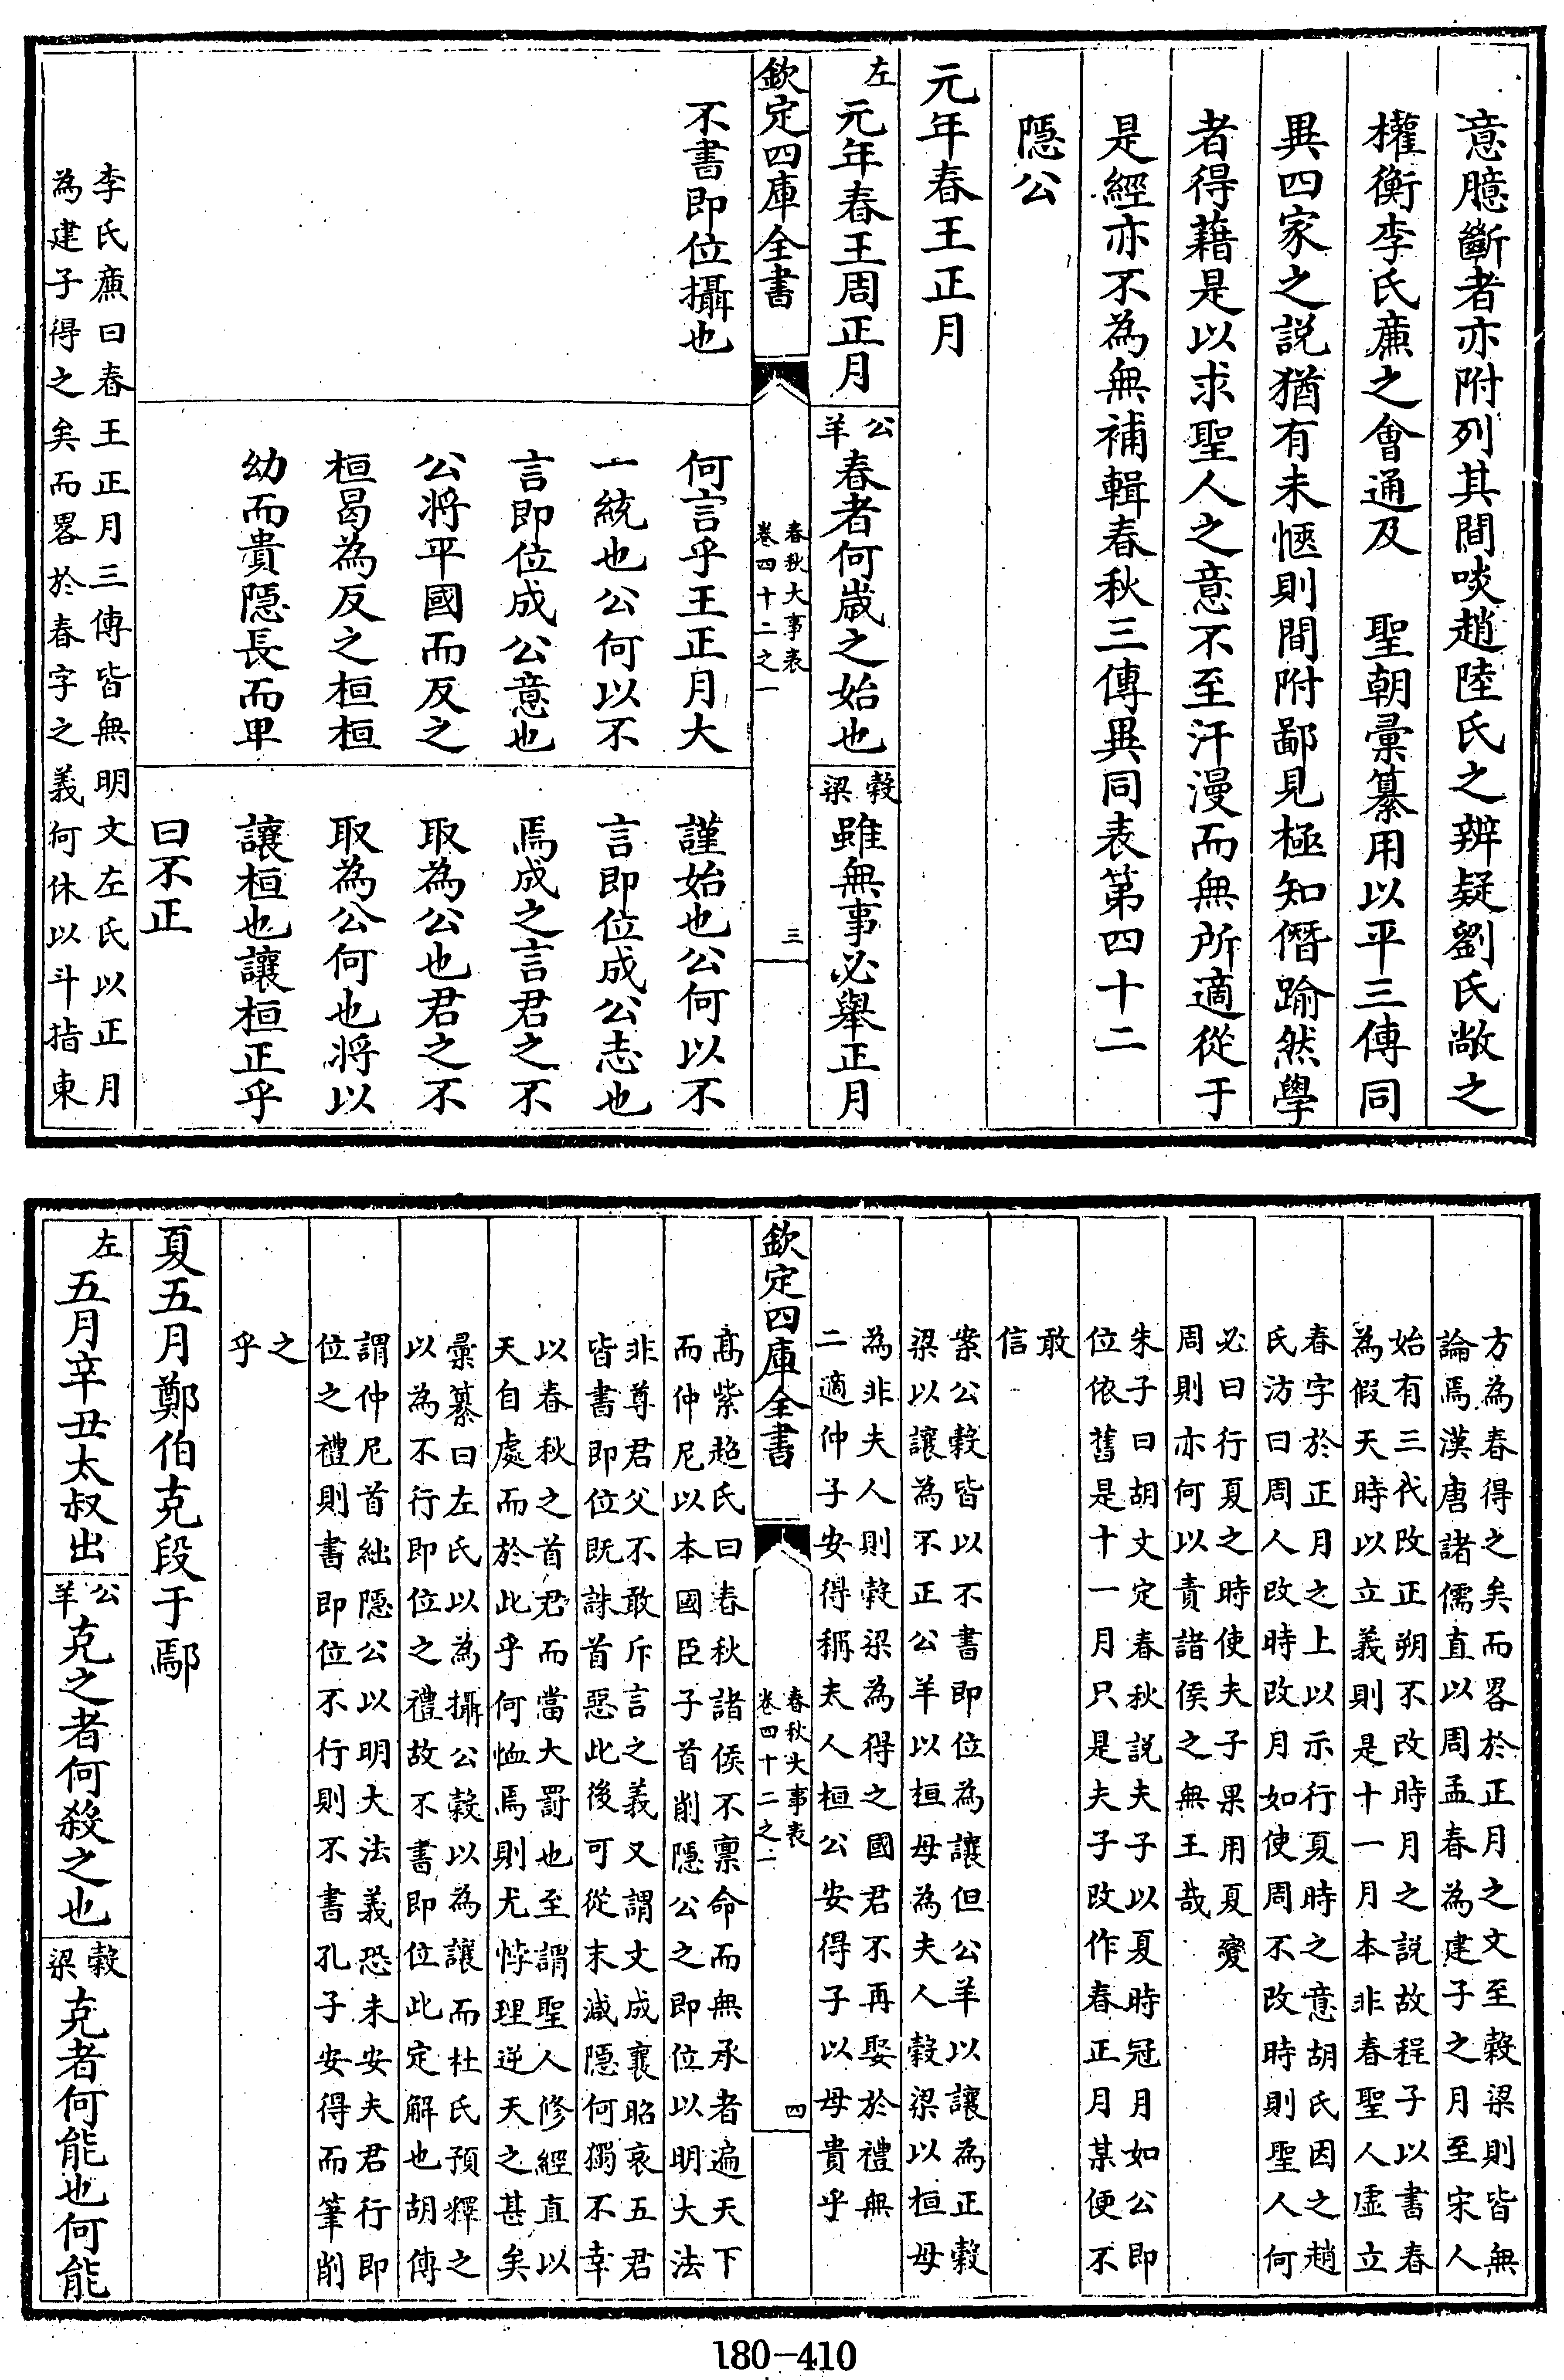 意臆斷者亦附列其間啖趙陸氏之辨疑劉氏敞之
權衡李氏廉之會通及　聖朝彚纂用以平三傳同
異四家之説猶有未愜則間附鄙見極知僭踰然學
者得藉是以求聖人之意不至汗漫而無所適從于
是經亦不為無補輯春秋三傳異同表第四十二
隱公
元年春王正月
左　元年春王周正月
公羊　春者何歲之始也
穀梁　雖無事必舉正月
欽定四庫全書
春秋大事表
卷四十二之一
三
不書即位攝也
何言乎王正月大
一統也公何以不
言即位成公意也
公將平國而反之
桓曷為反之桓桓
幼而貴隱長而卑
謹始也公何以不
言即位成公志也
焉成之言君之不
取為公也君之不
取為公何也將以
讓桓也讓桓正乎
曰不正
李氏廉曰春王正月三傳皆無明文左氏以正月
為建子得之矣而畧於春字之義何休以斗指東
方為春得之矣而畧於正月之文至穀梁則皆無
論焉漢唐諸儒直以周孟春為建子之月至宋人
始有三代改正朔不改時月之説故程子以書春
為假天時以立義則是十一月本非春聖人虛立
春字於正月之上以示行夏時之意胡氏因之趙
氏汸曰周人改時改月如使周不改時則聖人何
必曰行夏之時使夫子果用夏變
周則亦何以責諸侯之無王哉
朱子曰胡文定春秋説夫子以夏時冠月如公即
位依舊是十一月只是夫子改作春正月某便不
敢
信
案公穀皆以不書即位為讓但公羊以讓為正穀
梁以讓為不正公羊以桓母為夫人穀梁以桓母
為非夫人則穀梁為得之國君不再娶於禮無
二適仲子安得稱夫人桓公安得子以母貴乎
欽定四庫全書
春秋大事表
卷四十二之一
四
髙紫超氏曰春秋諸侯不禀命而無承者遍天下
而仲尼以本國臣子首削隱公之即位以明大法
非尊君父不敢斥言之義又謂文成襄昭哀五君
皆書即位既誅首惡此後可從末減隱何獨不幸
以春秋之首君而當大罰也至謂聖人修經直以
天自處而於此乎何恤焉則尤悖理逆天之甚矣
彚纂曰左氏以為攝公穀以為讓而杜氏預釋之
以為不行即位之禮故不書即位此定解也胡傳
謂仲尼首絀隱公以明大法義恐未安夫君行即
位之禮則書即位不行則不書孔子安得而筆削
之
乎
夏五月鄭伯克段于鄢
左　五月辛丑太叔出
公羊　克之者何殺之也
穀梁　克者何能也何能
180-410